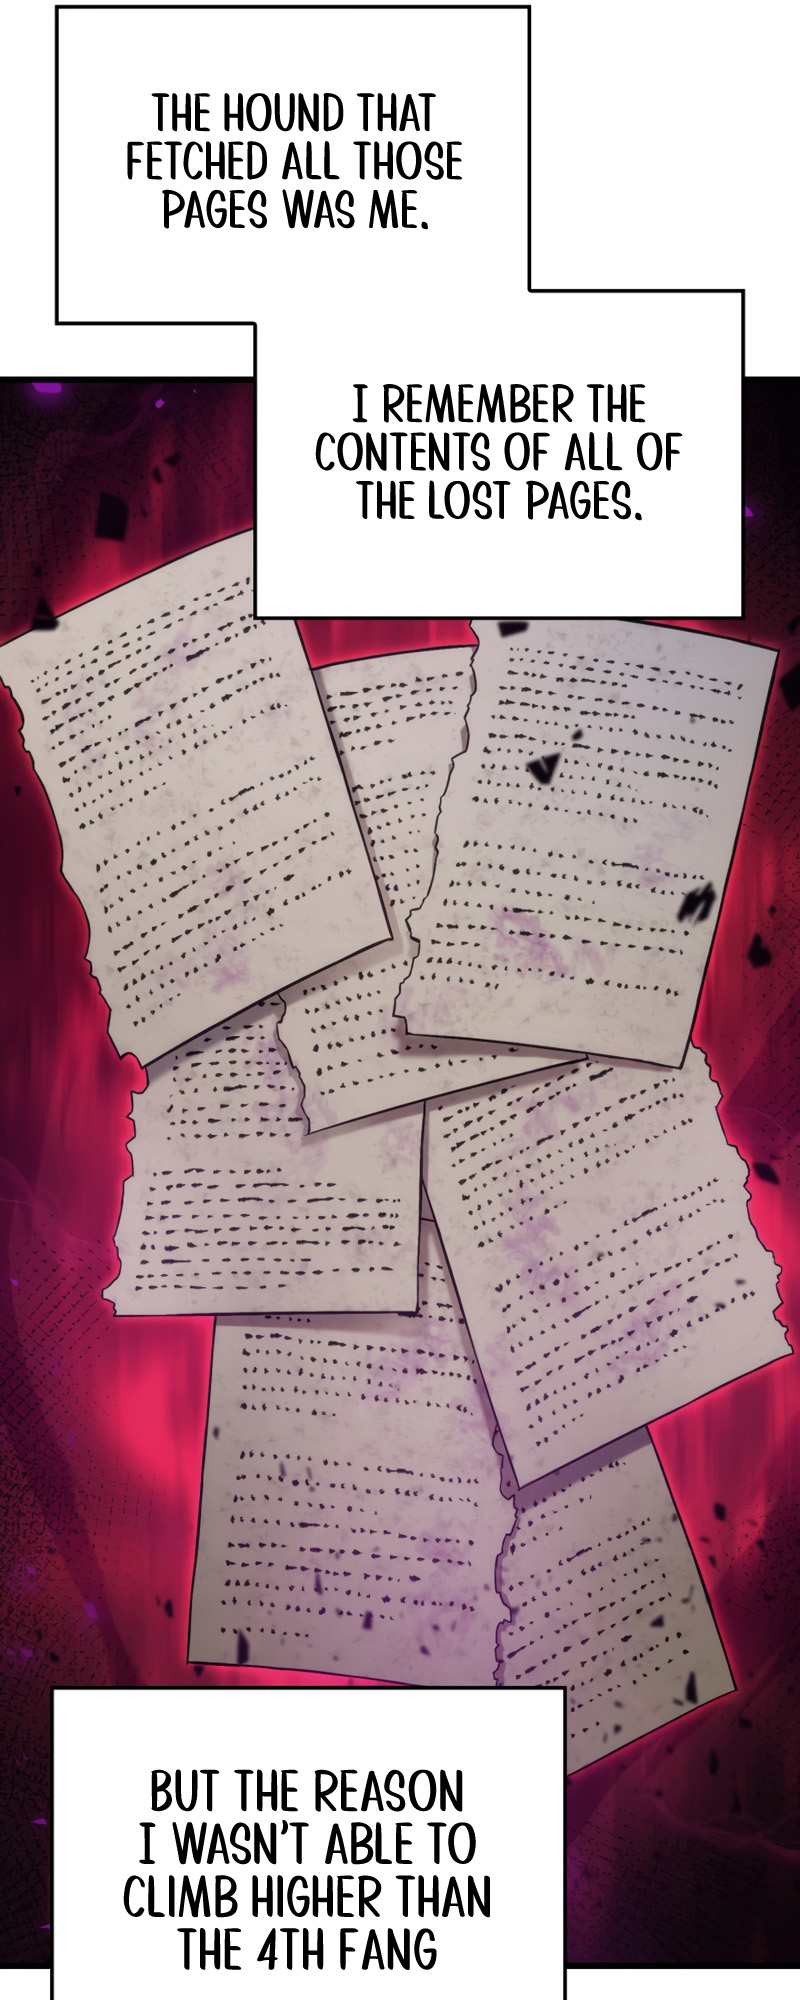 THE HOUND THAT
FETCHED ALL THOSE
PAGES WAS ME.
I REMEMBER THE
CONTENTS OF ALL OF
THE LOST PAGES.
BUT THE REASON
I WASN'T ABLE TO
CLIMB HIGHER THAN
THE 4TH FANG